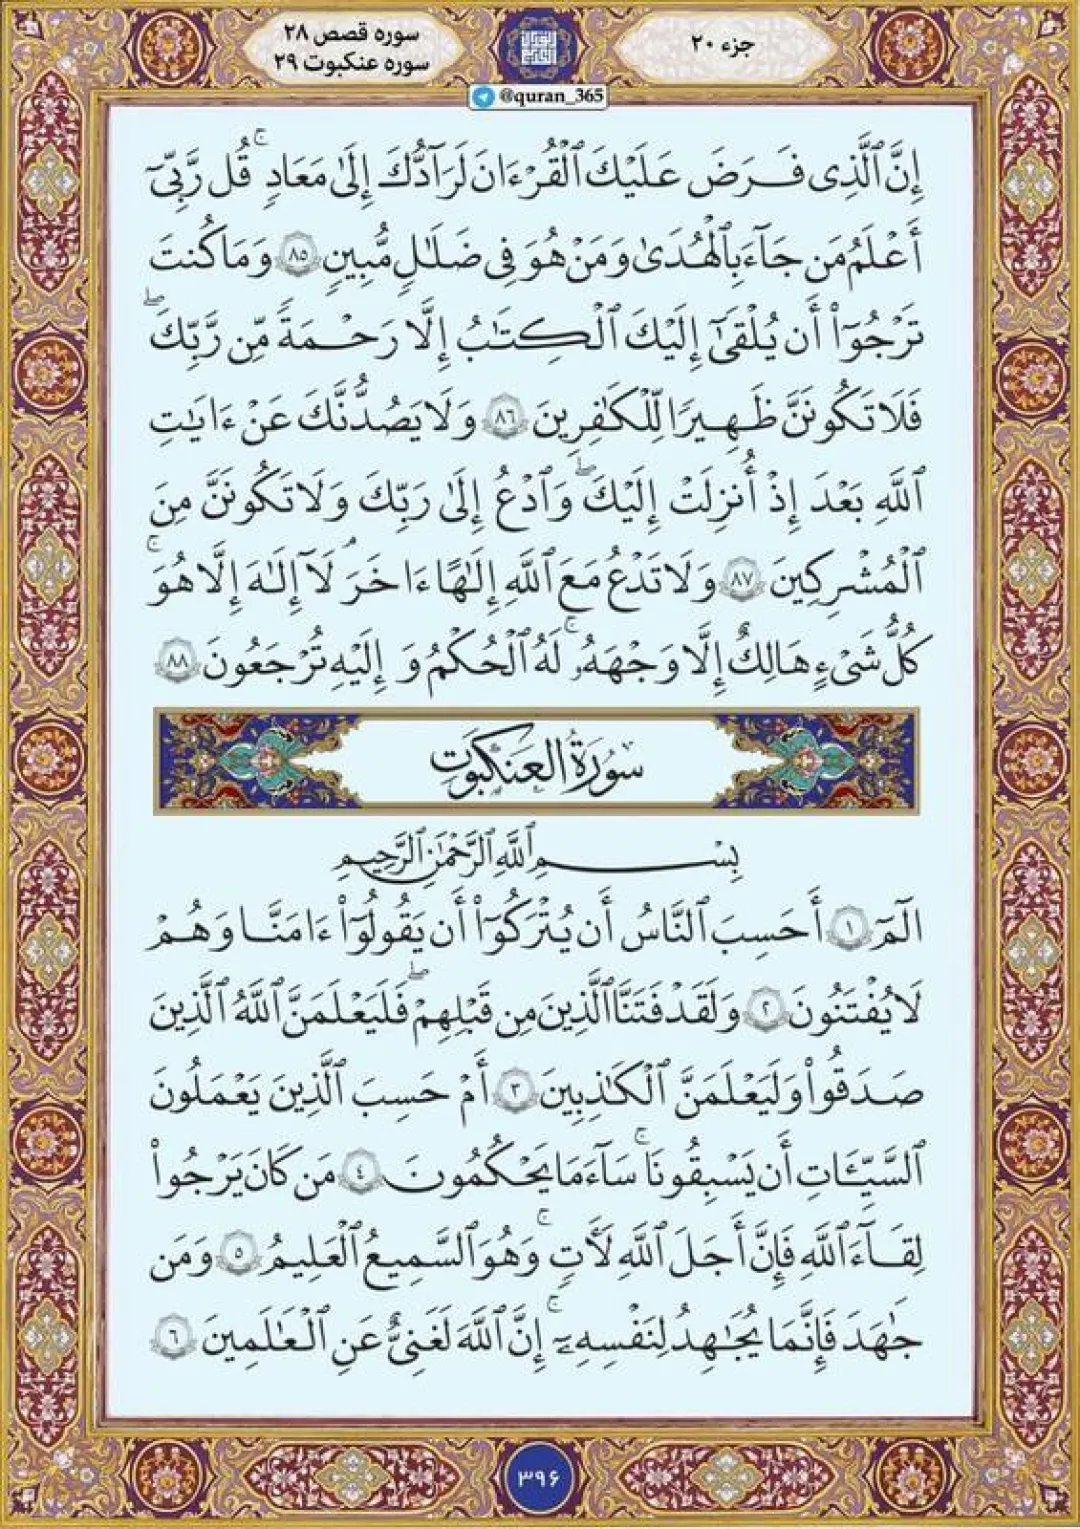 جزء ۲۰
سوره قصص ۲۸
سوره عنکبوت ۲۹
@quran_365
إِنَّ ٱلَّذِى فَرَضَ عَلَيْكَ ٱلْقُرْءَانَ لَرَآدُّكَ إِلَىٰ مَعَادٍ ۚ قُل رَّبِّىٓ
أَعْلَمُ مَن جَآءَ بِٱلْهُدَىٰ وَمَنْ هُوَ فِى ضَلَٰلٍ مُّبِينٍ ٨٥ وَمَا كُنتَ
تَرْجُوٓا۟ أَن يُلْقَىٰٓ إِلَيْكَ ٱلْكِتَٰبُ إِلَّا رَحْمَةً مِّن رَّبِّكَ ۖ
فَلَا تَكُونَنَّ ظَهِيرًا لِّلْكَٰفِرِينَ ٨٦ وَلَا يَصُدُّنَّكَ عَنْ ءَايَٰتِ
ٱللَّهِ بَعْدَ إِذْ أُنزِلَتْ إِلَيْكَ ۖ وَٱدْعُ إِلَىٰ رَبِّكَ وَلَا تَكُونَنَّ مِنَ
ٱلْمُشْرِكِينَ ٨٧ وَلَا تَدْعُ مَعَ ٱللَّهِ إِلَٰهًا ءَاخَرَ ۘ لَآ إِلَٰهَ إِلَّا هُوَ ۚ
كُلُّ شَىْءٍ هَالِكٌ إِلَّا وَجْهَهُۥ ۚ لَهُ ٱلْحُكْمُ وَإِلَيْهِ تُرْجَعُونَ ٨٨
سُورَةُ العَنكَبُوت
بِسْمِ ٱللَّهِ ٱلرَّحْمَٰنِ ٱلرَّحِيمِ
الٓمٓ ١ أَحَسِبَ ٱلنَّاسُ أَن يُتْرَكُوٓا۟ أَن يَقُولُوٓا۟ ءَامَنَّا وَهُمْ
لَا يُفْتَنُونَ ٢ وَلَقَدْ فَتَنَّا ٱلَّذِينَ مِن قَبْلِهِمْ ۖ فَلَيَعْلَمَنَّ ٱللَّهُ ٱلَّذِينَ
صَدَقُوا۟ وَلَيَعْلَمَنَّ ٱلْكَٰذِبِينَ ٣ أَمْ حَسِبَ ٱلَّذِينَ يَعْمَلُونَ
ٱلسَّيِّـَٔاتِ أَن يَسْبِقُونَا ۚ سَآءَ مَا يَحْكُمُونَ ٤ مَن كَانَ يَرْجُوا۟
لِقَآءَ ٱللَّهِ فَإِنَّ أَجَلَ ٱللَّهِ لَـَٔاتٍ ۚ وَهُوَ ٱلسَّمِيعُ ٱلْعَلِيمُ ٥ وَمَن
جَٰهَدَ فَإِنَّمَا يُجَٰهِدُ لِنَفْسِهِۦٓ ۚ إِنَّ ٱللَّهَ لَغَنِىٌّ عَنِ ٱلْعَٰلَمِينَ ٦
۳۹۶